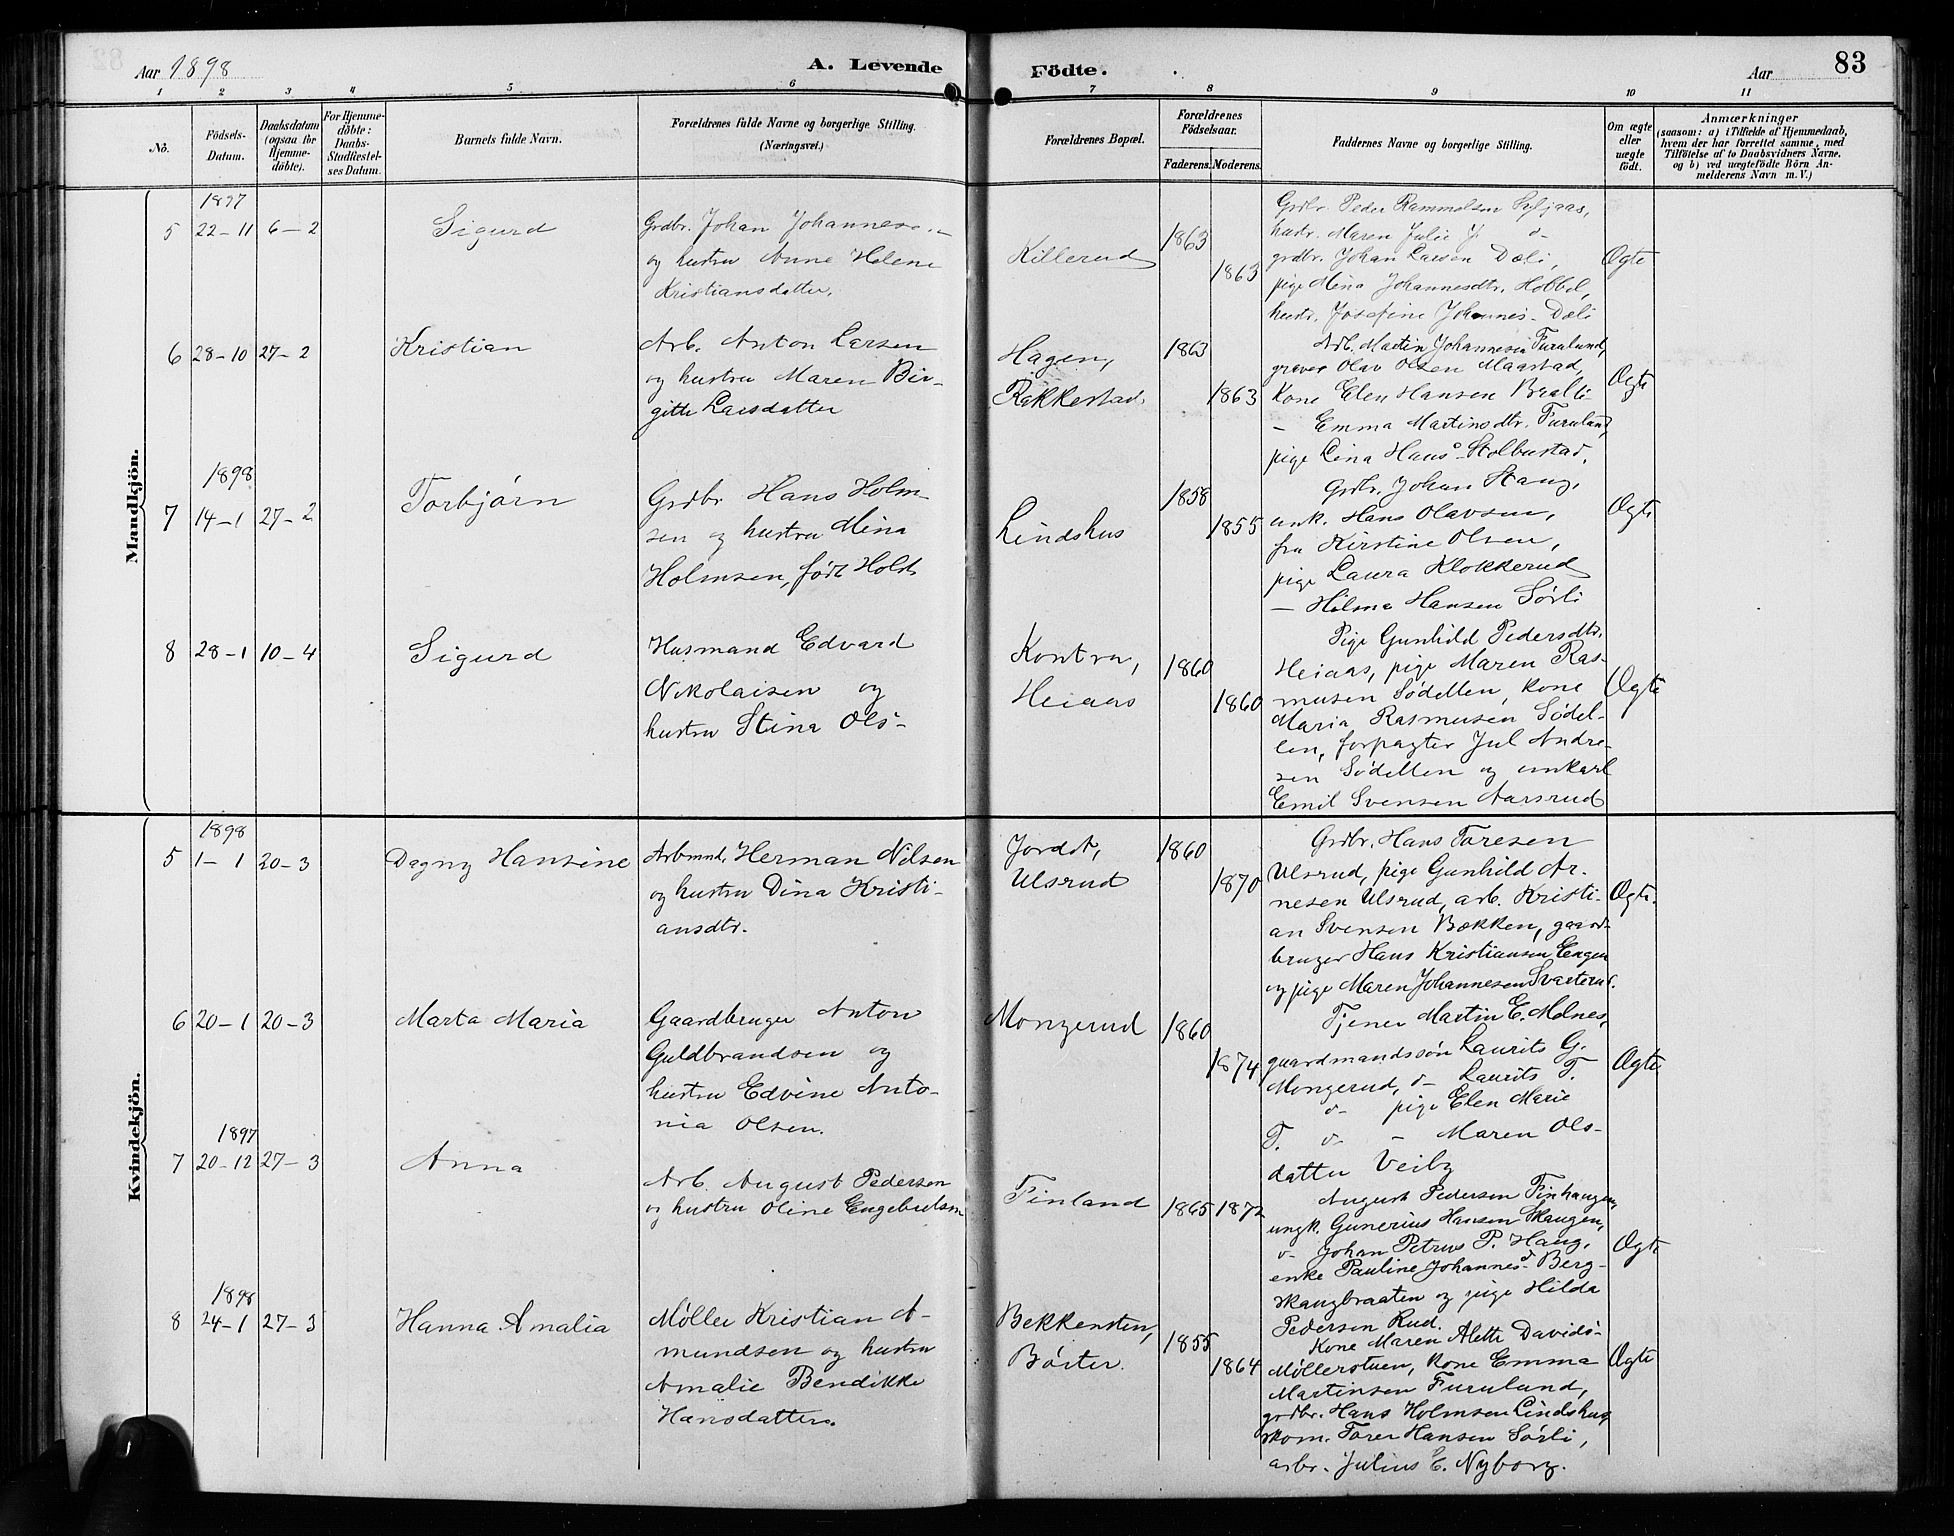 Aar 1898
A. Levende
Födte.
Aar
83
1 2 3 4 5 6 7 8 9 10 11
No.
Födsels-
Datum.
Daabsdatum
(ogsaa for
Hjemme-
döbte).
For Hjemme-
döbte:
Daabs-
Stadfæstel-
ses Datum.
Barnets fulde Navn.
Forældrenes fulde Navne og borgerlige Stilling.
(Næringsvei.)
Forældrenes Bopæl.
Forældrenes
Födselsaar.
Faderens.
Moderens.
Faddernes Navne og borgerlige Stilling.
Om ægte
eller
uægte
födt.
Anmærkninger
(saasom: a) i Tilfælde af Hjemmedaab,
hvem der har forrettet samme, med
Tilföielse af to Daabsvidners Navne.
og b) ved uægtefödte Börn An-
melderens Navn m. V.)
Mandkjön.
1897
5 22-11 6-2
Sigurd
Grdbr. Johan Johannes
og hustru Anne Helene
Kristiansdatter.
Killerud
1863
1863
Grdbr. Peder Rammelsen
hustr. Maren Julie J. d-
grdbr. Johan Larsen Dæli,
pige Mina Johannesdtr. Hobbel,
hustr. Josefine Johannes- Dæli
Ægte
6 28-10 27-2
Kristian
Arb. Anton Larsen
og hustru Maren Bir-
gitte Larsdatter
Hagen,
Rakkestad.
1863
1863
Arb. Martin Johannesen Furulund,
graver Olav Olsen Maastad,
Kone Elen Hansen Brælti
- Emma Martinsdtr. Furuland,
pige Lina Hans- Stolbustad.
Ægte
1898
7 14-1 27-2
Torbjørn
Grdbr Hans Holm-
sen og hustru Mina
Holmsen, født Holst
Lindshus
1858
1855
Grdbr. Johan Haug,
unk. Hans Olavsen,
fru Kirstine Olsen,
pige Laura Klokkerud
- Hilma Hansen Sørli
Ægte
8 28-1 10-4
Sigurd
Husmand Edvard
Nikolaisen og
hustru Stina Ols-
Kontra,
Heiaas
1860
1860
Pige Gunhild Pedersdtr.
Heiaas, pige Maren Ras-
musen Sødellen, kone
Maria Rasmusen Sødel-
len, forpagter Jul Andre-
sen Sødellen og unkarl
Emil Svensen Aarsrud
Ægte
Kvindekjön.
1898
5 1-1 20-3
Dagny Hansine
Arbmnd. Herman Nilsen
og hustru Dina Kristi-
ansdtr.
Jordet,
Ulsrud
1860
1870
Grdbr. Hans Toresen
Ulsrud, pige Gunhild Ar-
nesen Ulsrud, arb. Kristi-
an Svensen Bækken, gaard-
bruger Hans Kristiansen Engen
og pige Maren Johannesen Svarterud.
Ægte.
6 20-1 20-3
Marta Maria
Gaardbruger Anton
Guldbrandsen og
hustru Edvine Anto-
nia Olsen.
Mongerud
1860
1874
Tjener Martin E. Molnes,
gaardmandssøn Laurits G.
Mongerud, d- Laurits T.
d- pige Elen Marie
T. d- - Maren Ols-
datter Veiby
Ægte
1897
7 20-12 27-3
Anna
Arb. August Pedersen
og hustru Oline Engebretsen
Finland
1865 1872
August Pedersen Finhaugen,
ungk. Gunerius Hansen Skaugen,
d- Johan Petrus P. Haug,
enke Pauline Johannes- Berg-
Skaugbraaten og pige Hilda
Pedersen Rud.
Ægte
1898
8 24-1 27-3
Hanna Amalia
Møller Kristian A-
mundsen og hustru
Amalie Bendikke
Hansdatter.
Bekkensten,
Børter.
1855
1864
Kone Maren Alette Davids-
Møllerstuen, kone Emma
Martinsen Furuland,
grdbr. Hans Holmsen Lindshus,
skom. Torer Hansen Sørli,
arbr. Julius E. Nyborg.
Ægte